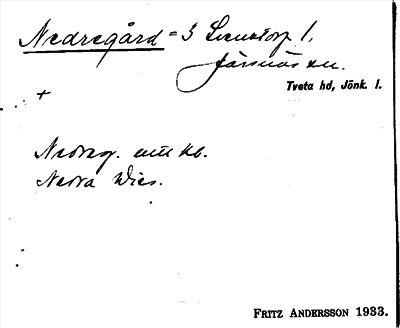 Nedregård = 3 Svenstorp 1,
Järsnäs sn.
Tveta hd, Jönk. l.
+
Nedreg. enl. kb.
Nedra Wies.
FRITZ ANDERSSON 1933.